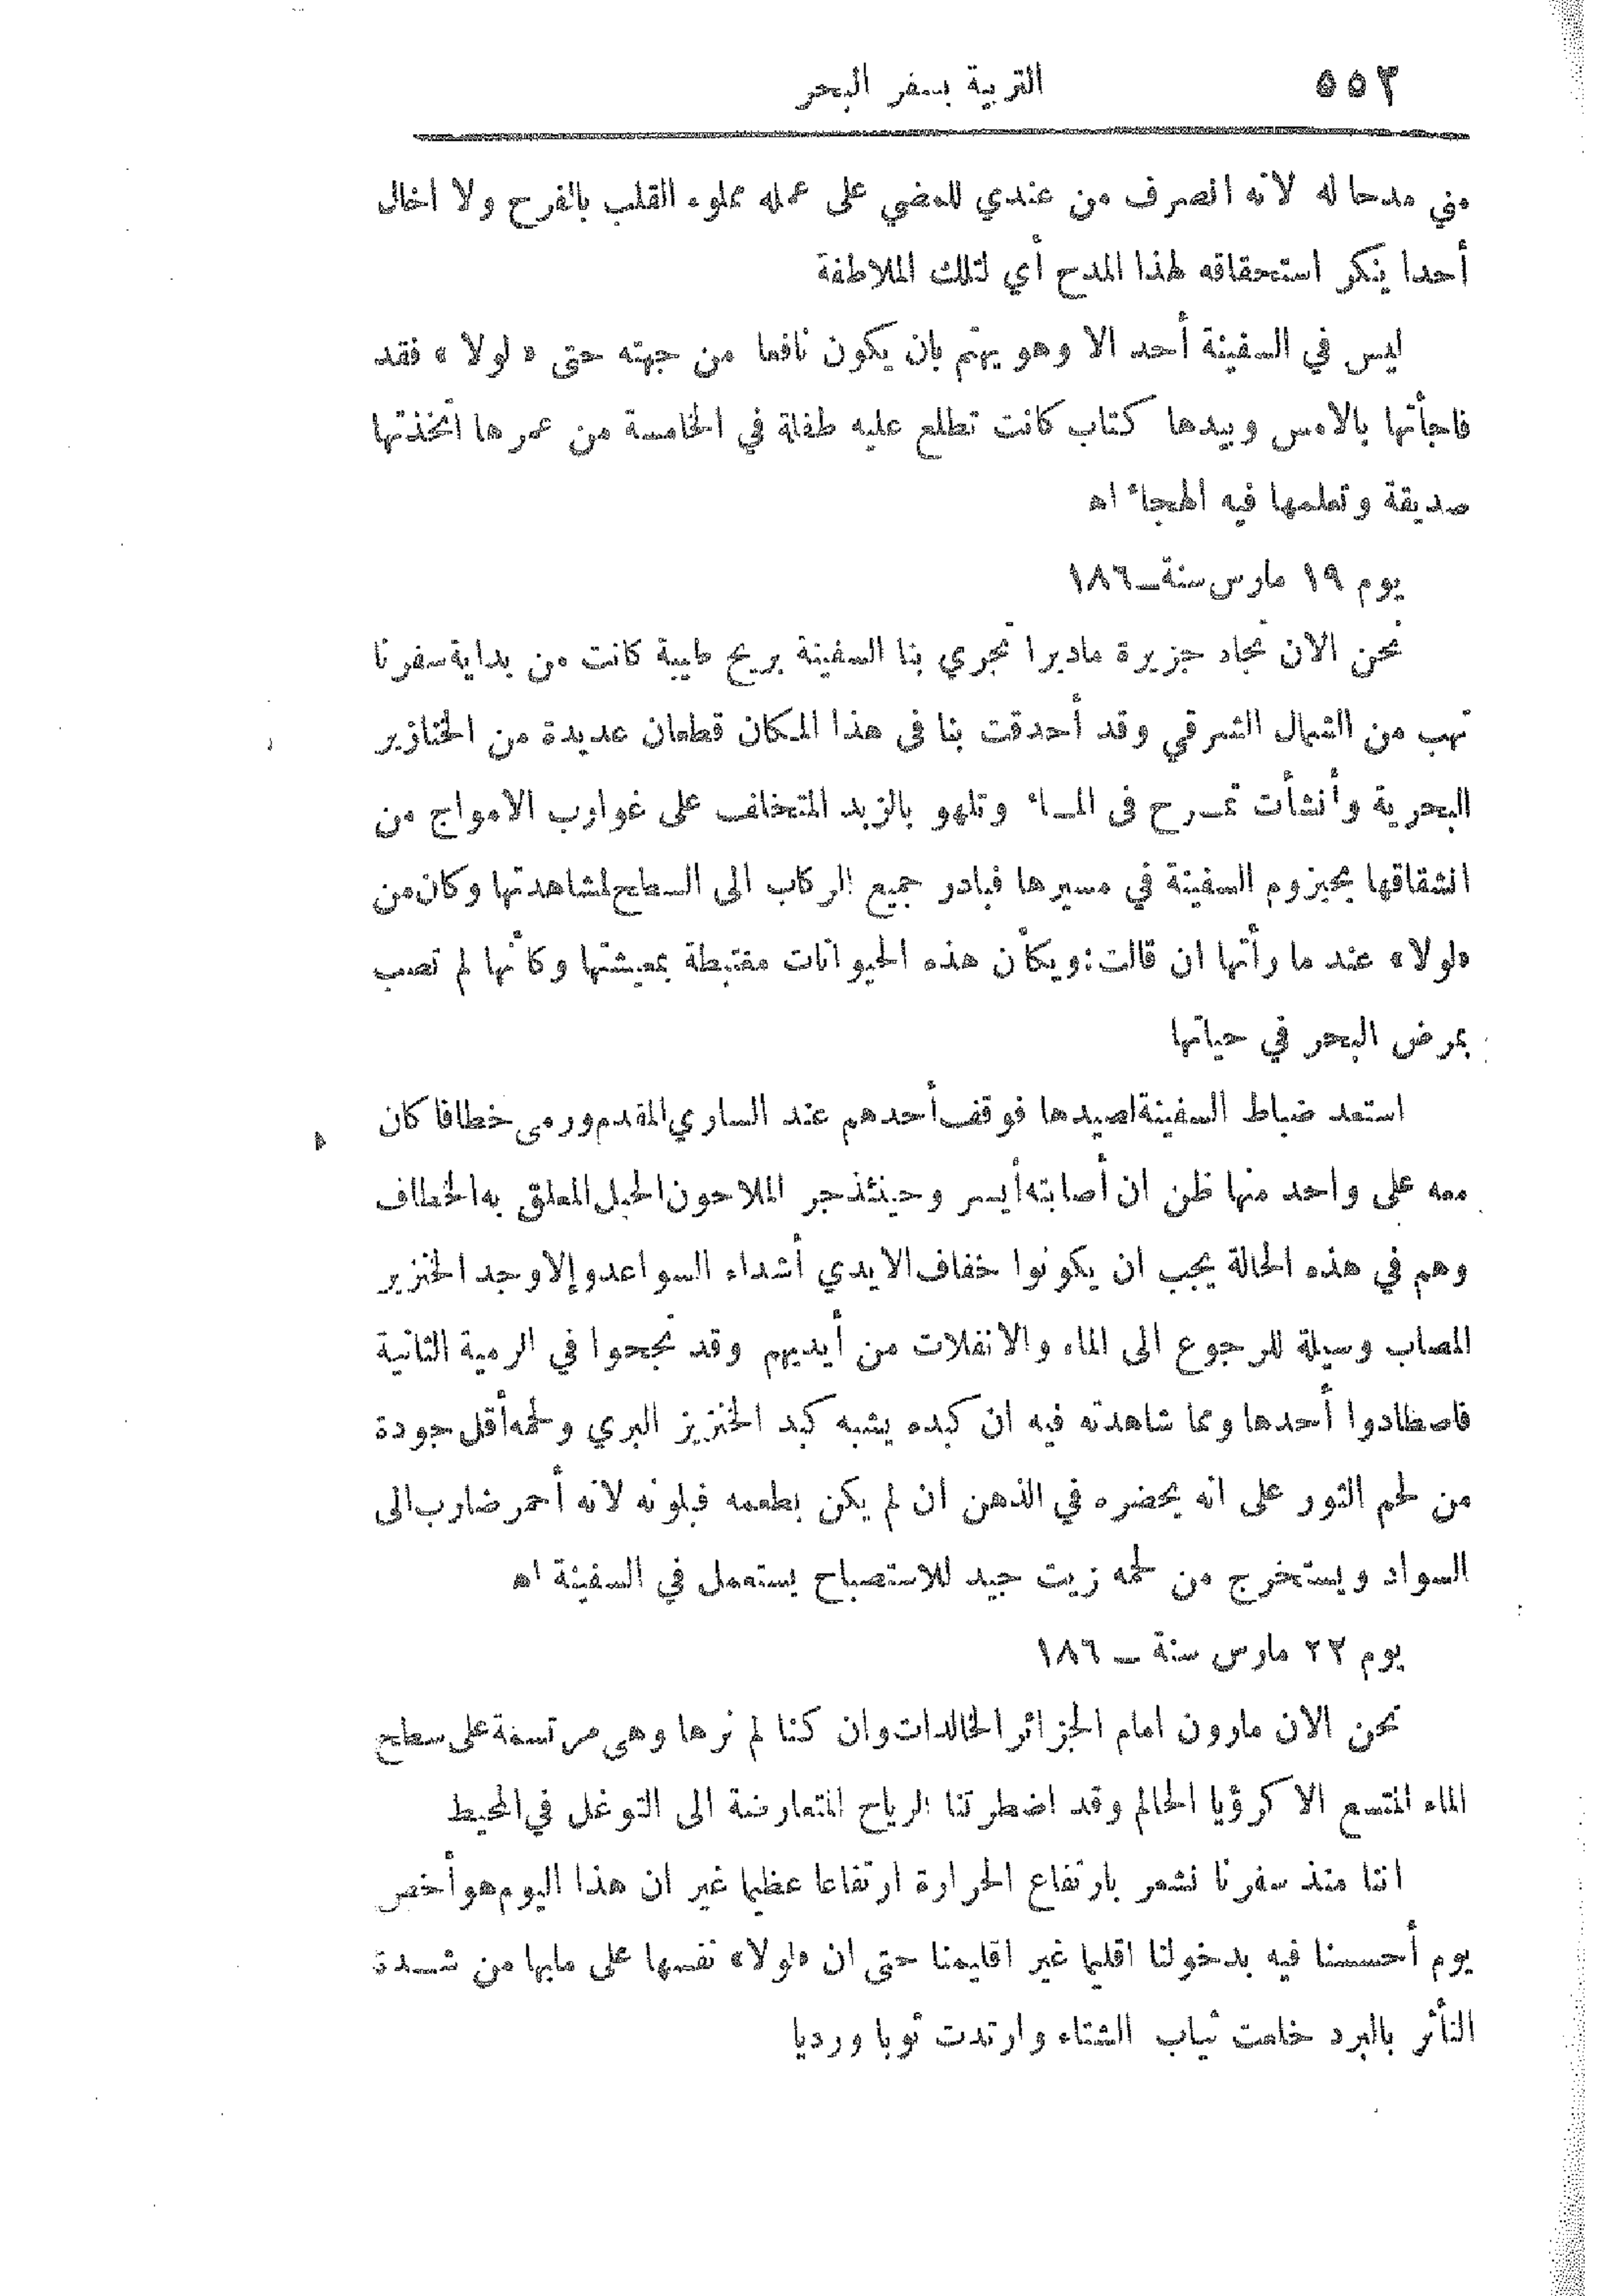 ٥٥٢ التربية بسفر البحر
مني مدحا له لانه انصرف من عندي للمضي على عمله مملوء القلب بالفرح ولا اخال
أحدا ينكر استحقاقه لهذا المدح أي لتلك الملاطفة
ليس في السفينة أحد الا وهو يهتم بان يكون نافعا من جهته حتى « لولا » فقد
فاجأتها بالامس وبيدها كتاب كانت تطلع عليه طفلة في الخامسة من عمرها اتخذتها
صديقة وتعلمها فيه الهجاء اه
يوم ١٩ مارس سنة ــ١٨٦
نحن الآن تجاد جزيرة ماديرا تجري بنا السفينة بريح طيبة كانت من بداية سفرنا
تهب من الشمال الشرقي وقد أحدقت بنا فى هذا المكان قطعان عديدة من الخنازير
البحرية وأنشأت تمــرح فى المــاء وتلهو بالزبد المتخلف على غوارب الامواج من
انشقاقها بحيزوم السفينة في مسيرها فبادر جميع الركاب الى السطح لمشاهدتها وكان من
«لولا» عند ما رأتها ان قالت: ويكأن هذه الحيوانات مغتبطة بمعيشتها وكأنها لم تصب
بمرض البحر في حياتها
استعد ضباط السفينة لصيدها فوقف أحدهم عند الساري المقدم ورمى خطافا كان
معه على واحد منها ظن ان أصابته أيسر وحينئذ جر الملاحون الحبل المعلق به الخطاف
وهم في هذه الحالة يجب ان يكونوا خفاف الايدي أشداء السواعد وإلا وجد الخنزير
المصاب وسيلة للرجوع الى الماء والانفلات من أيديهم وقد نجحوا في الرمية الثانية
فاصطادوا أحدها ومما شاهدته فيه ان كبده يشبه كبد الخنزيز البري ولحمه أقل جودة
من لحم الثور على انه يحضره في الذهن ان لم يكن بطعمه فبلونه لانه أحمر ضارب الى
السواد ويستخرج من لحمه زيت جيد للاستصباح يستعمل في السفينة اه
يوم ٢٢ مارس سنة ــ ١٨٦
نحن الآن مارون امام الجزائر الخالدات وان كنا لم نرها وهى مرتسمة على سطح
الماء المتسع الا كرؤيا الحالم وقد اضطرتنا الرياح المتعارضة الى التوغل في المحيط
اننا منذ سفرنا نشعر بارتفاع الحرارة ارتفاعا عظيما غير ان هذا اليوم هو أخص
يوم أحسسنا فيه بدخولنا اقليما غير اقليمنا حتى ان «لولا» نفسها على مابها من شــدة
التأثر بالبرد خلعت ثياب الشتاء وارتدت ثوبا ورديا